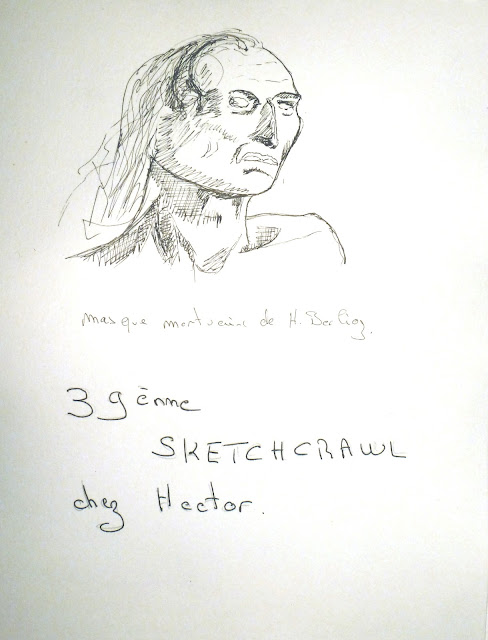 masque mortuaire de H. Berlioz.
39ènne
SKETCHCRAWL
chez Hector.